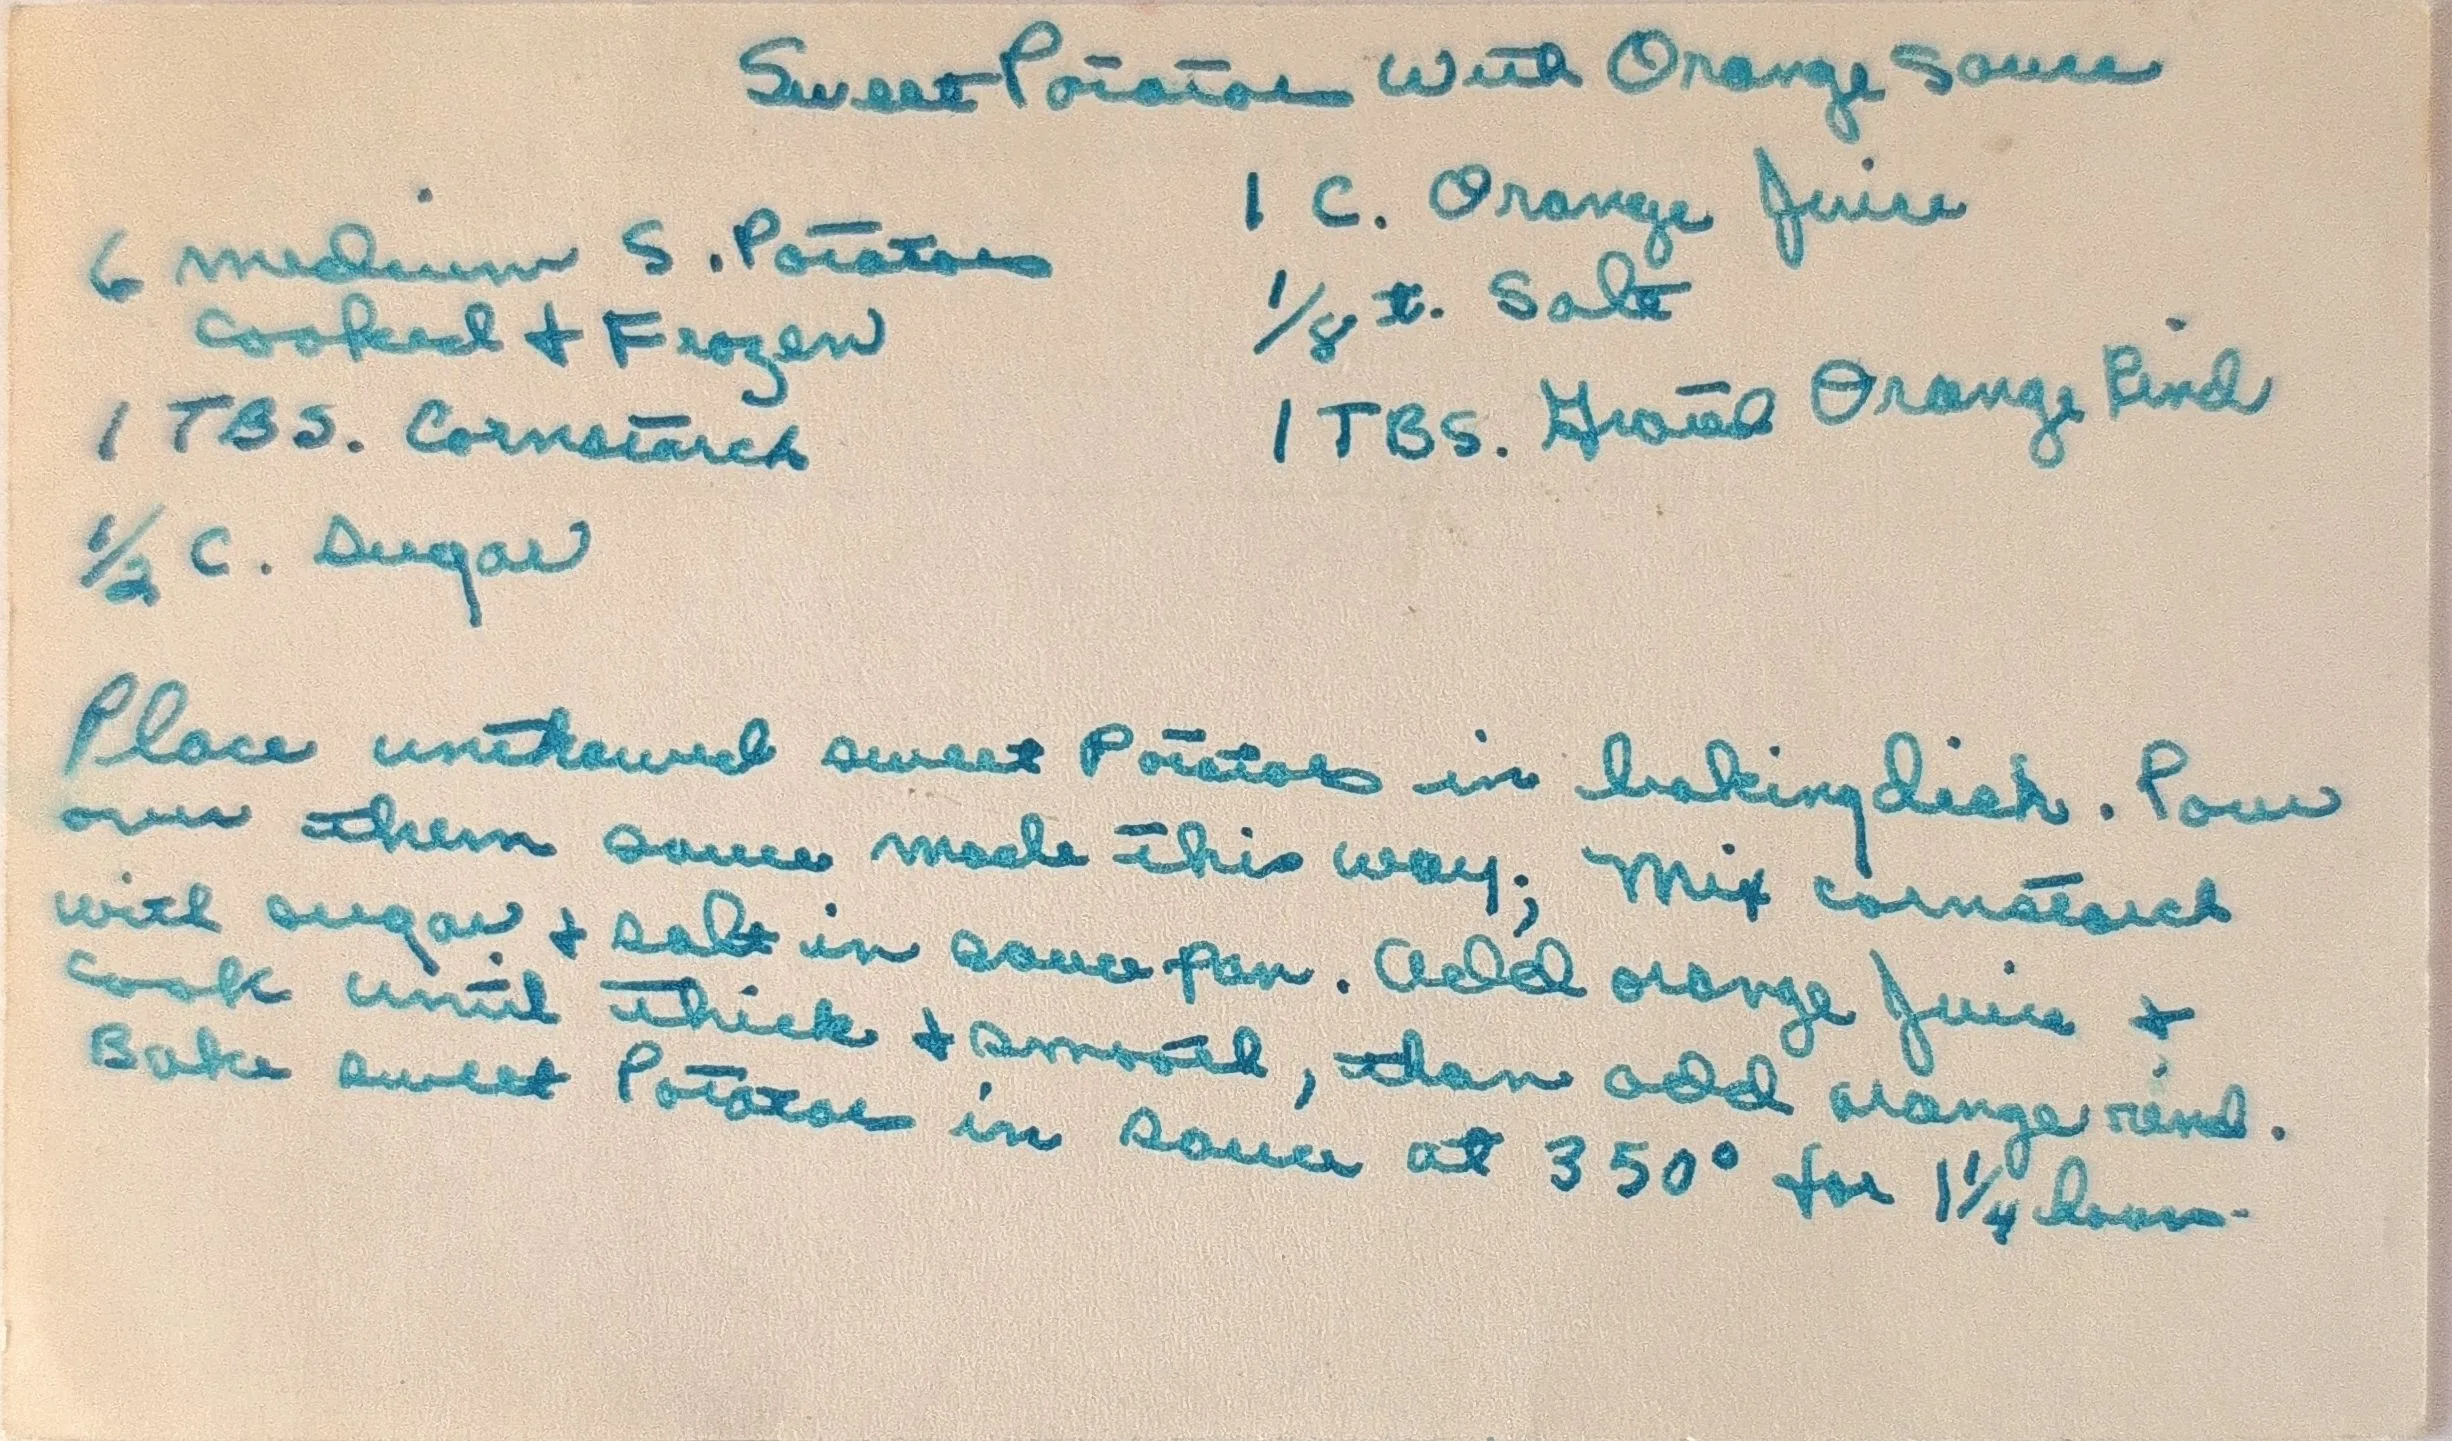 Sweet Potatoes With Orange Sauce
6 medium S. Potatoes
Cooked + Frozen
1 TBS. Cornstarch
1/2 C. Sugar
1 C. Orange Juice
1/8 t. Salt
1 TBS. Grated Orange Rind
Place unthawed sweet Potatoes in baking dish. Pour
over them sauce made this way; Mix cornstarch
with sugar + salt in sauce pan. Add orange Juice +
Cook until thick + smooth, than add orange rind.
Bake sweet Potatoes in sauce at 350° for 1 1/4 hours.